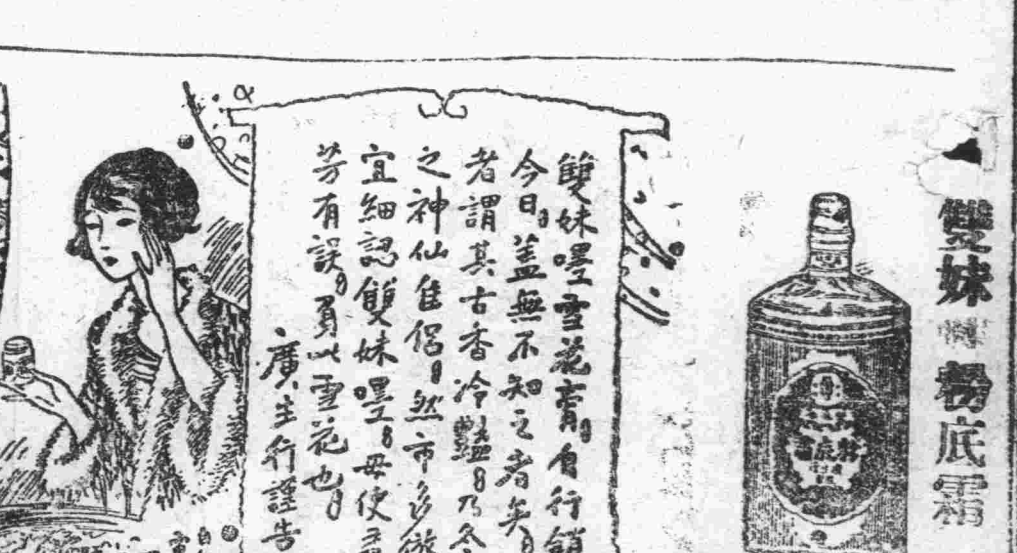 雙妹
粉底霜
雙妹嘜雪花膏自行銷
今日蓋無不知之者矣
者謂其古香冷豔乃冬
之神仙隹侶然市多倣
宜細認雙妹嘜毋使
芳有誤負此雪花也
廣生行謹告